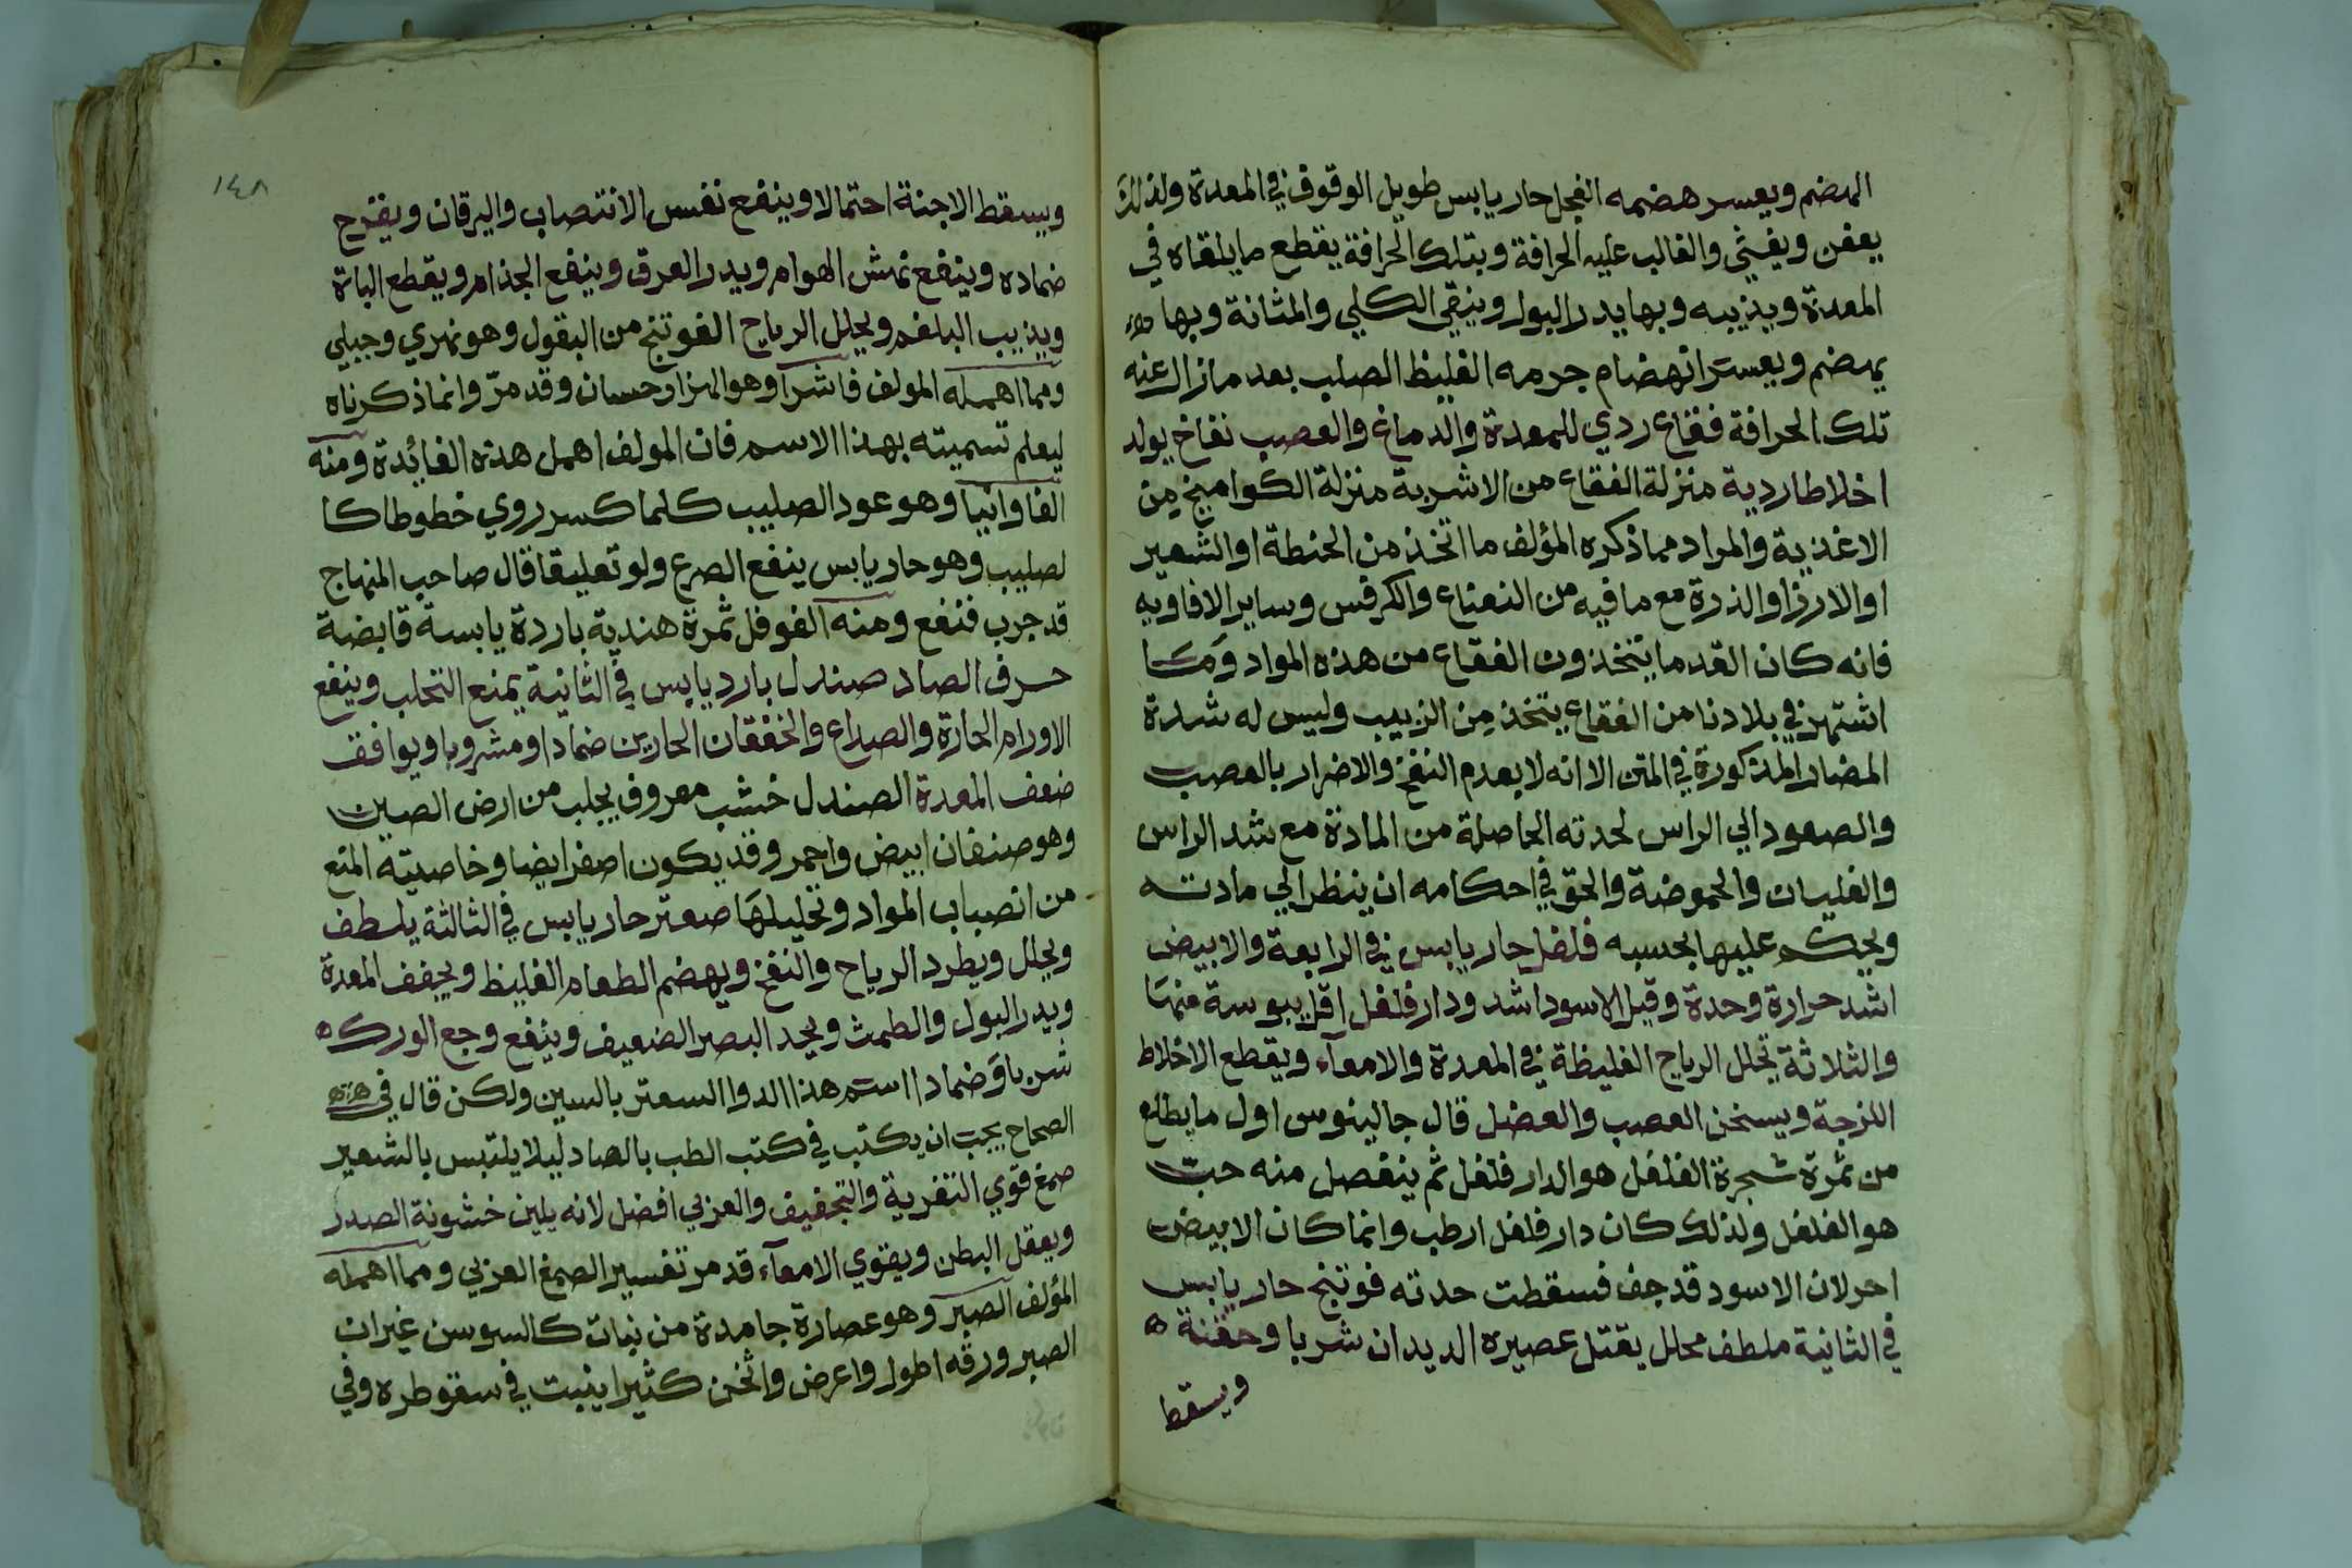 الهضم ويعسر هضمه الفجل حار يابس طويل الوقوف في المعدة ولذلك
يعفن ويغثي والغالب عليه الحرافة وبتلك الحرافة يقطع ما يلقاه في
المعدة ويذيبه وبها يدر البول وينقي الكلي والمثانة وبها
يهضم ويعسر انهضام جرمه الغليظ الصلب بعد ما زال عنه
تلك الحرافة فقاع ردي للمعدة والدماغ والعصب نفاخ يولد
اخلاطا ردية منزلة الفقاع من الاشربة منزلة الكواميخ من
الاغذية والمراد مما ذكره المؤلف ما اتخذ من الحنطة او الشعير
او الارز او الذرة مع ما فيه من النعناع والكرفس وساير الافاويه
فانه كان القدما يتخذون الفقاع من هذه المواد وما
اشتهر في بلادنا من الفقاع يتخذ من الزبيب وليس له شدة
المضار المذكورة في المتن الا انه لا يعدم النفخ والاضرار بالعصب
والصعود الي الراس لحدته الحاصلة من المادة مع شد الراس
والغليان والحموضة والحق في احكامه ان ينظر الي مادته
ويحكم عليها بحسبه فلفل حار يابس في الرابعة والابيض
اشد حرارة وحدة وقيل الاسود اشد ودار فلفل اقل يبوسة منها
والثلاثة تحلل الرياح الغليظة في المعدة والامعآء ويقطع الاخلاط
اللزجة ويسخن العصب والعضل قال جالينوس اول ما يطلع
من ثمرة شجرة الفلفل هو الدار فلفل ثم ينفصل منه حب
هو الفلفل ولذلك كان دار فلفل ارطب وانما كان الابيض
احر لان الاسود قد جف فسقطت حدته فوتنج حار يابس
في الثانية ملطف محلل يقتل عصيره الديدان شربا وحقنة ه
ويسقط
١٤٨
ويسقط الاجنة احتمالا وينفع نفس الانتصاب واليرقان ويقرح
ضماده وينفع نهش الهوام ويدر العرق وينفع الجذام ويقطع الباة
ويذيب البلغم ويحلل الرياح الفوتنج من البقول وهو نهري وجبلي
ومما اهمله المولف فاشرا وهو الهزار حسان وقد مرّ وانما ذكرناه
ليعلم تسميته بهذا الاسم فان المولف اهمل هذه الفائدة ومنه
الفاوانيا وهو عود الصليب كلما كسر روي خطوطا كا
لصليب وهو حار يابس ينفع الصرع ولو تعليقا قال صاحب المنهاج
قد جرب فنفع ومنه الفوفل ثمرة هندية باردة يابسة قابضة
حرف الصاد صندل بارد يابس في الثانية يمنع التحلب وينفع
الاورام الحارة والصداع والخفقان الحارين ضمادا ومشروبا ويوافق
ضعف المعدة الصندل خشب معروف يجلب من ارض الصين
وهو صنفان ابيض واحمر وقد يكون اصفر ايضا وخاصيته المنع
من انصباب المواد وتحليلها صعتر حار يابس في الثالثة يلطف
ويحلل ويطرد الرياح والنفخ ويهضم الطعام الغليظ ويجفف المعدة
ويدر البول والطمث ويحد البصر الضعيف وينفع وجع الورك ه
شربا وضمادا استم هذا الدوا السعتر بالسين ولكن قال في
الصحاح يجب ان يكتب في كتب الطب بالصاد ليلا يلتبس بالشعير
صمغ قوي التغرية والتجفيف والعربي افضل لانه يلين خشونة الصدر
ويعقل البطن ويقوي الامعآء قد مر تفسير الصمغ العربي ومما اهمله
المؤلف الصبر وهو عصارة جامدة من نبات كالسوسن غير ان
الصبر ورقه اطول واعرض واثخن كثيرا ينبت في سقوطره وفي